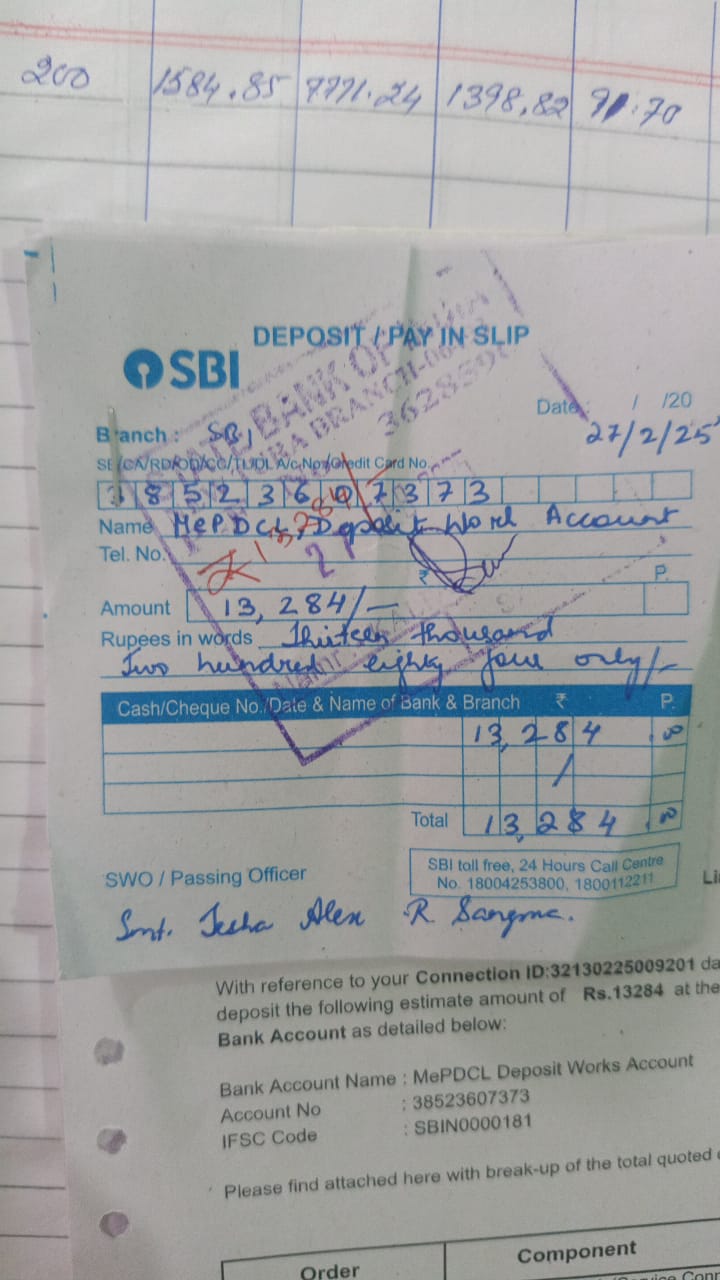 200 1584.85 7771.24 1398.82 91.70
DEPOSIT / PAY IN SLIP
SBI
STATE BANK OF INDIA
BRANCH
Date: / /20
27/2/25
Branch : SBI
SB/CA/RD/OD/CC/TL/DL A/c No./Credit Card No.
38523607373
Name MePDCL Deposit Work Account
Tel. No.
13284/
₹ P.
Amount 13,284/-
Rupees in words Thirteen thousand
Two hundred eighty four only/-
Cash/Cheque No./Date & Name of Bank & Branch ₹ P.
13,284 .00
Total 13,284 .00
SWO / Passing Officer
SBI toll free, 24 Hours Call Centre
No. 18004253800, 1800112211
Smt. Alex R Sangma.
With reference to your Connection ID:32130225009201 da
deposit the following estimate amount of Rs.13284 at the
Bank Account as detailed below:
Bank Account Name : MePDCL Deposit Works Account
Account No : 38523607373
IFSC Code : SBIN0000181
Please find attached here with break-up of the total quoted
Order Component